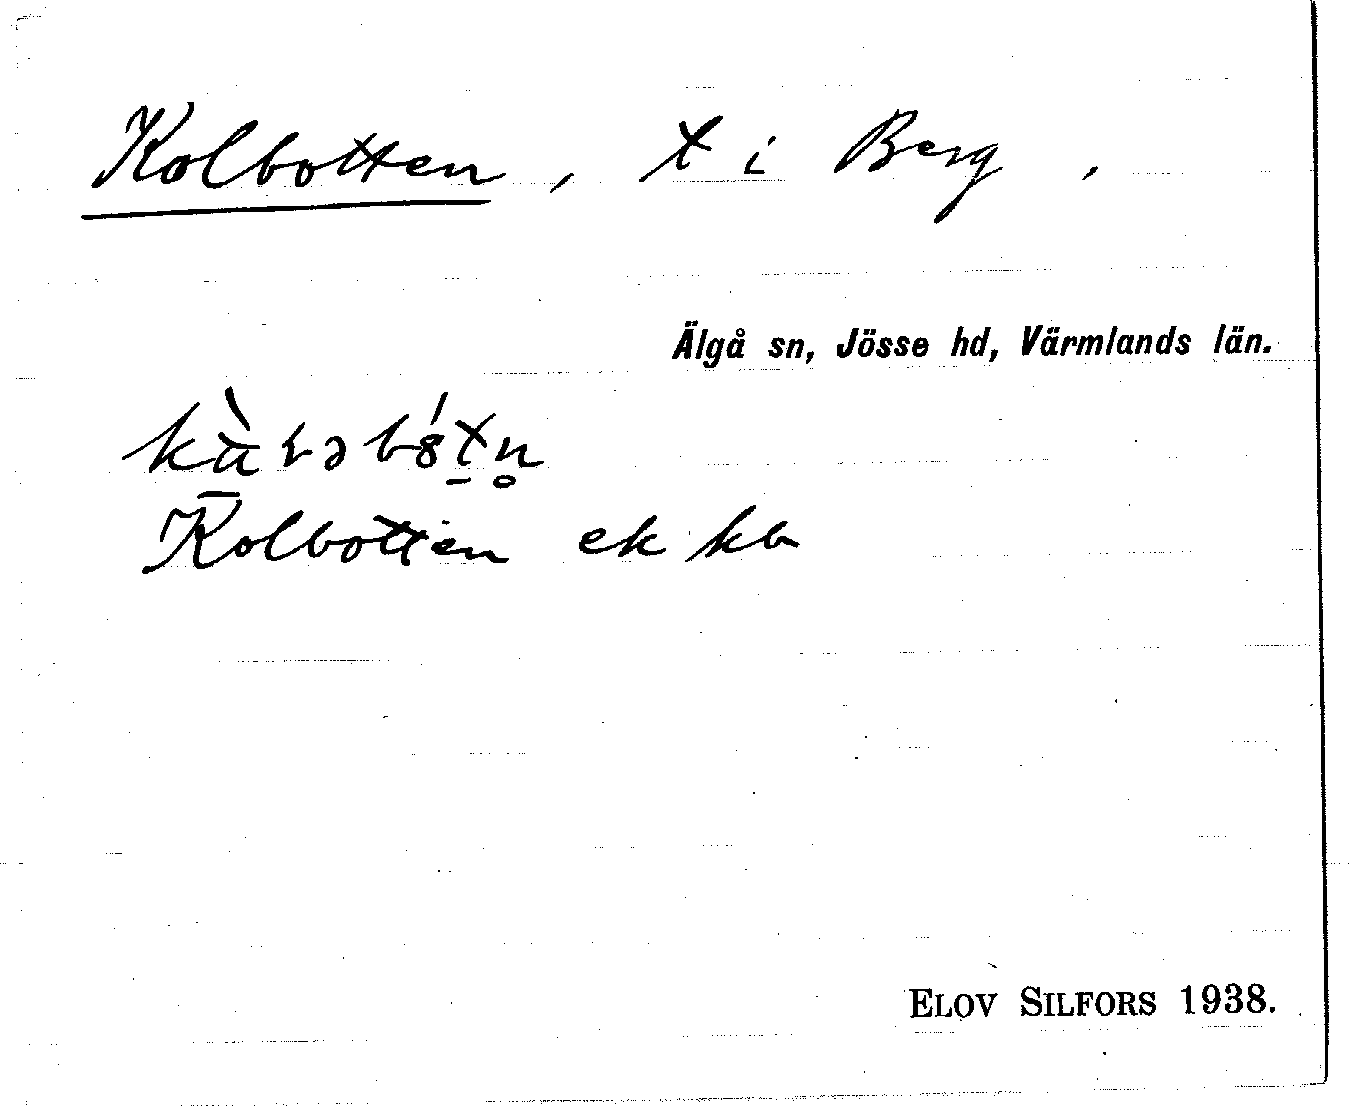 Kolbotten, t i Berg,
Älgå sn, Jösse hd, Värmlands län.
Kolbotten ek kb
ELOV SILFORS 1938.